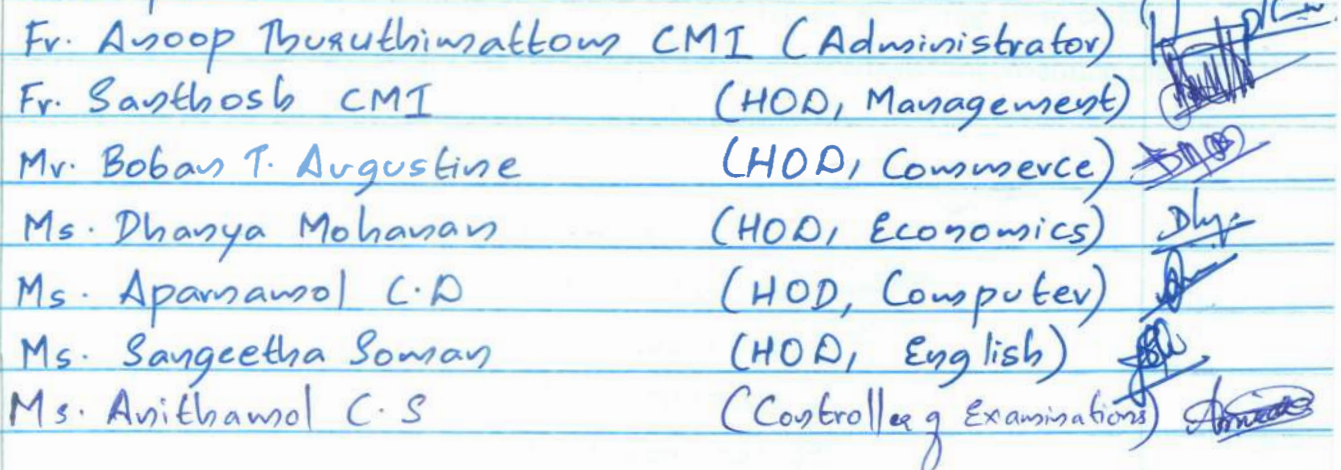 Fr. Anoop Thuruthimattom CMI (Administrator)
Fr. Santhosh CMI (HOD, Management)
Mr. Boban T. Augustine (HOD, Commerce)
Ms. Dhanya Mohanan (HOD, Economics) Dhy
Ms. Aparnamol C.D (HOD, Computer)
Ms. Sangeetha Soman (HOD, English)
Ms. Anithamol C.S (Controller of Examinations)